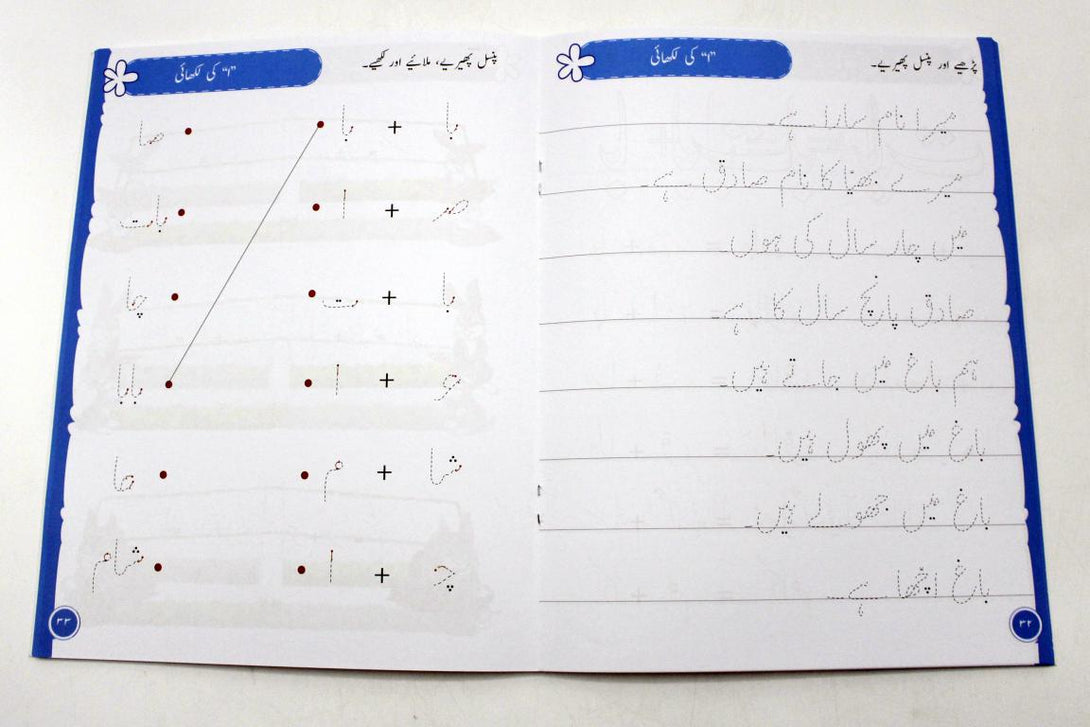 پڑھیے اور پنسل پھیریے۔ "ا" کی لکھائی
میرا نام سارا ہے۔
میرے بھیا کا نام صادق ہے۔
میں چار سال کی ہوں۔
صادق پانچ سال کا ہے۔
ہم باغ میں جاتے ہیں۔
باغ میں پھول ہیں۔
باغ میں جھولے ہیں۔
باغ اچھا ہے۔
۳۲
پنسل پھیریے، ملائیے اور لکھیے۔ "ا" کی لکھائی
با + با صا
صـ + ا بات
با + ت چا
حـ + ا بابا
شا + م حا
چـ + ا شام
۳۳